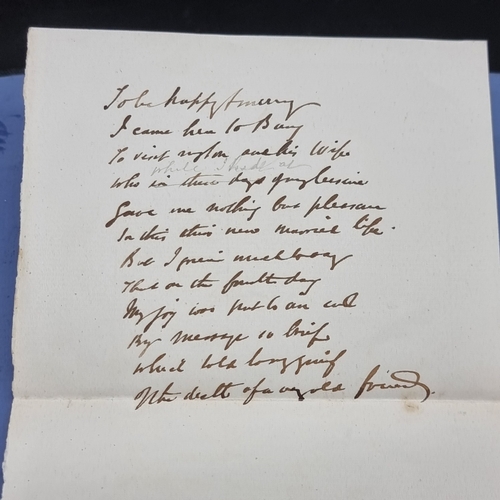 To be happy & merry
I came here to Bury
To visit my son and his Wife
while I was at
who in three days gay leisure
Gave me nothing but pleasure
In this their new married life.
But I grieve much to say
That on the fourth day
My joy was put to an end
By message so brief
which told long grief
Of the death of a very old friend.